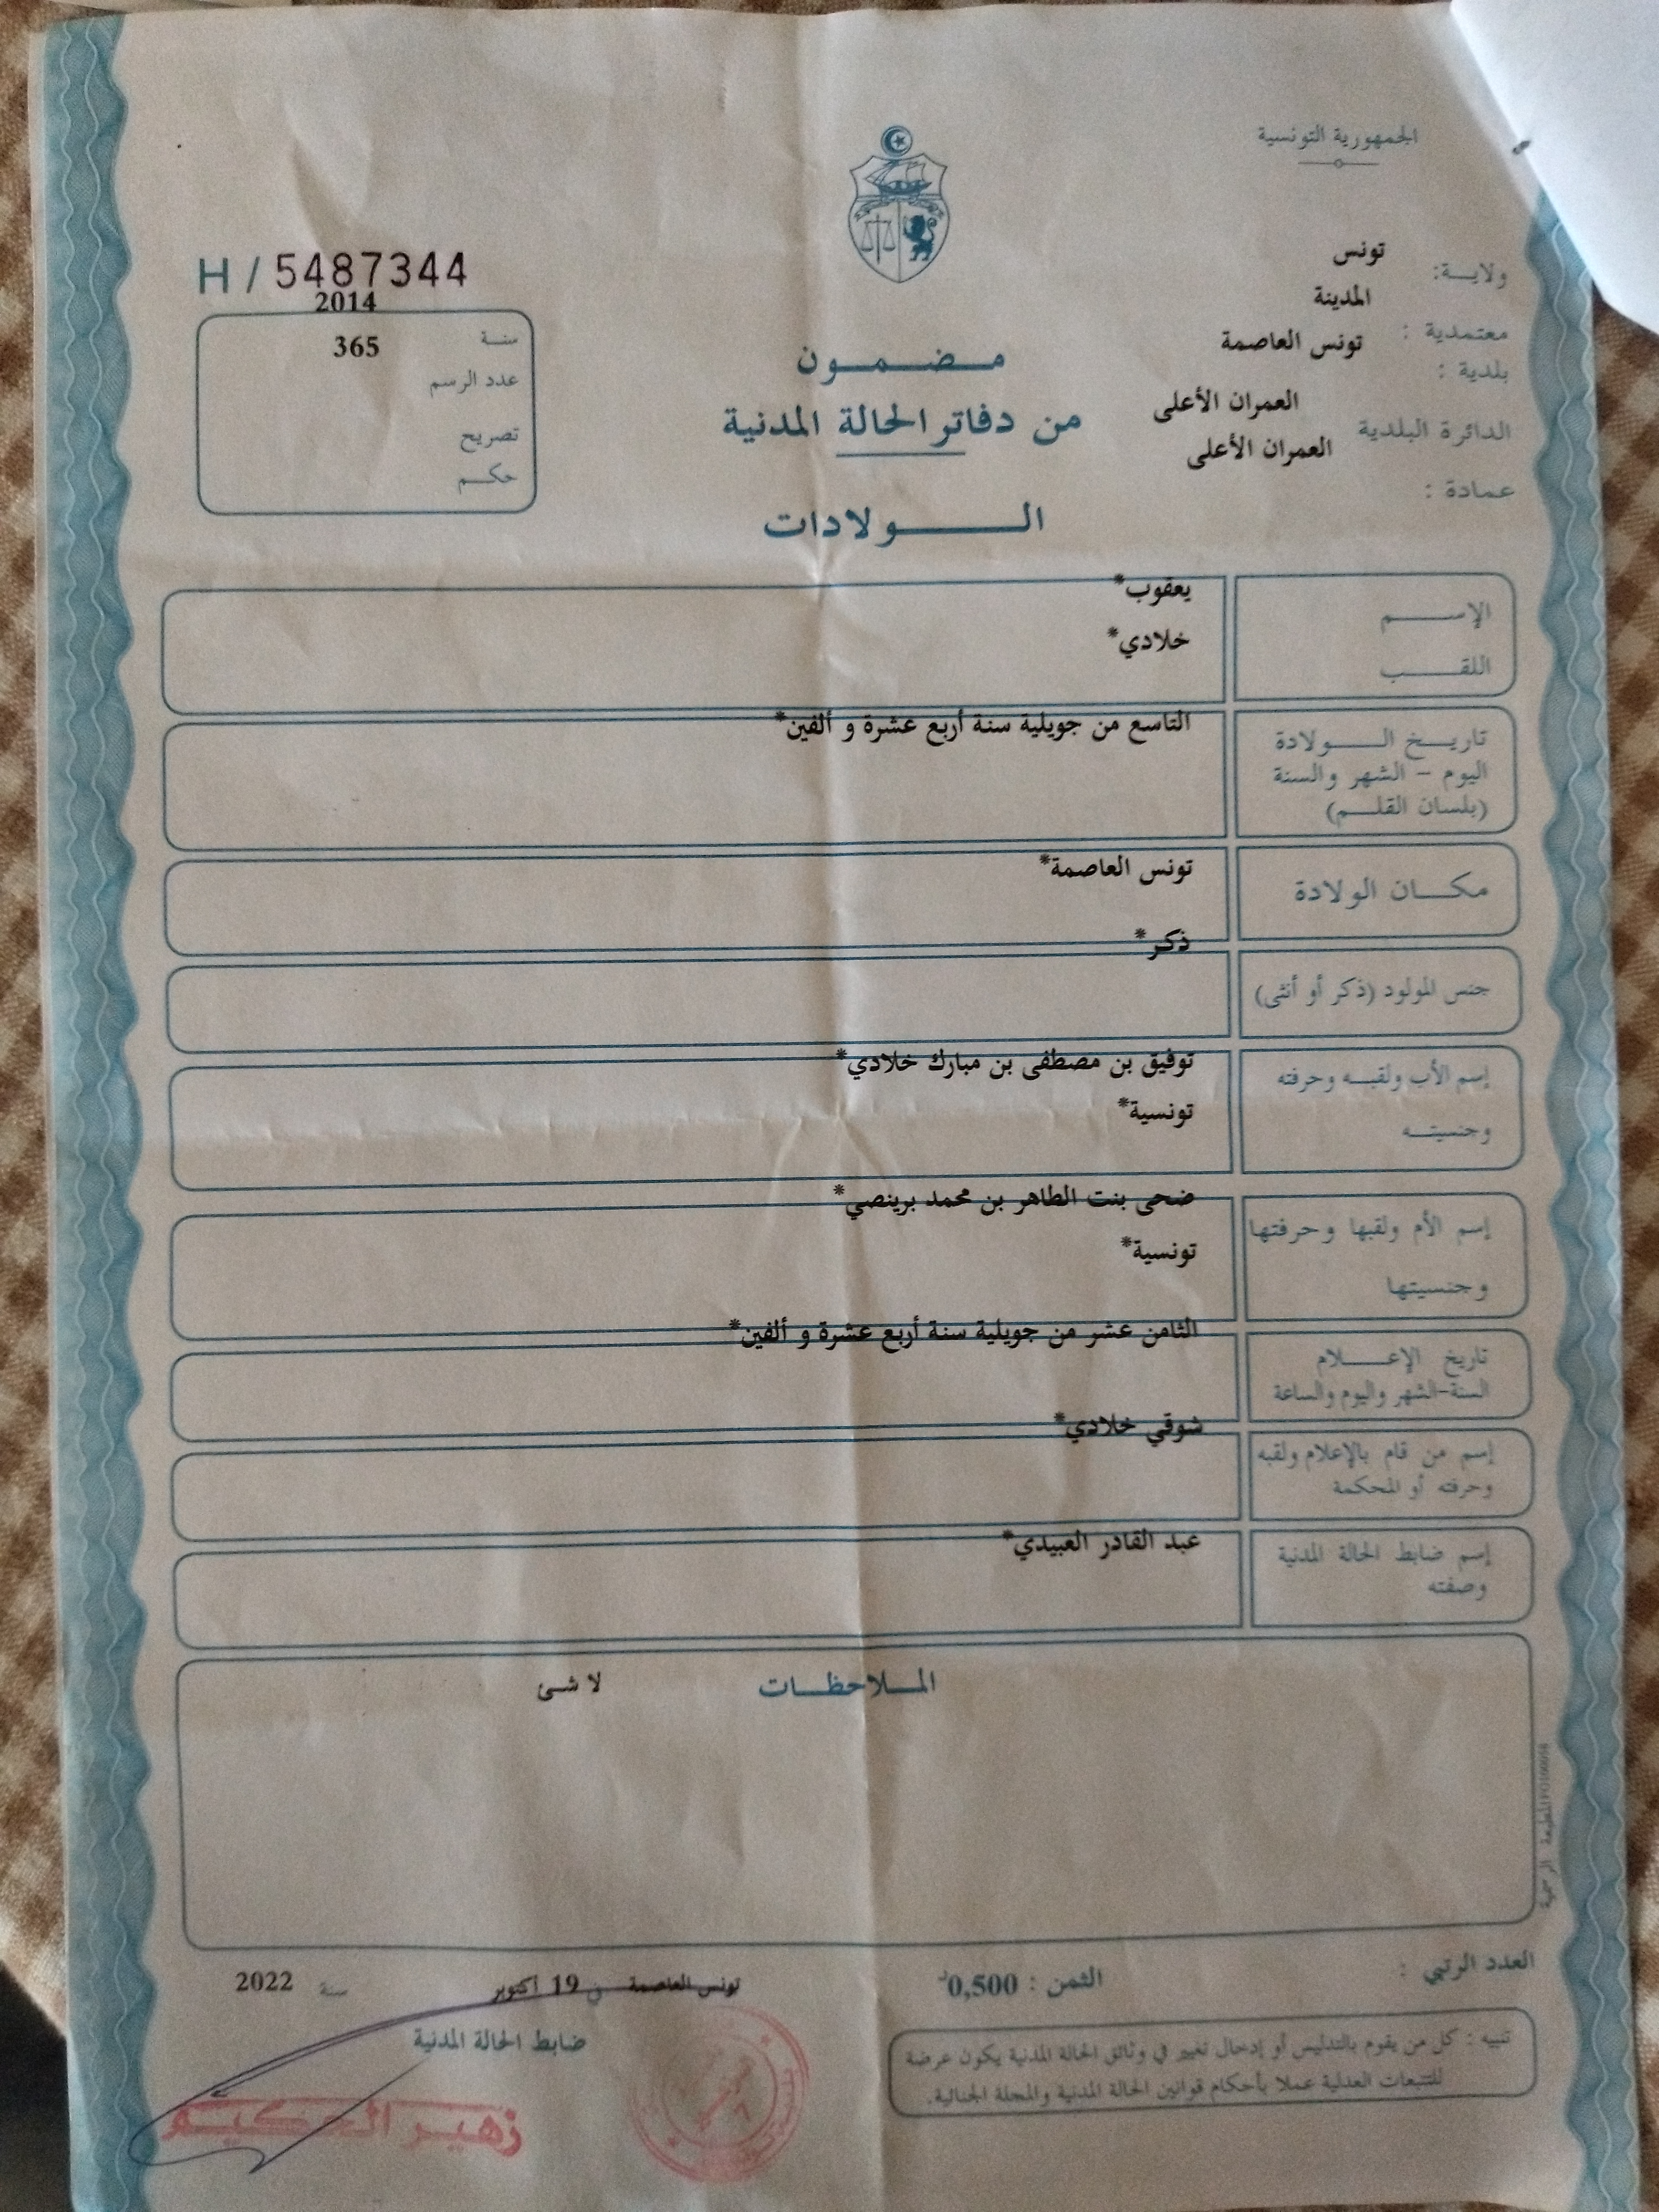 الجمهورية التونسية
ولاية: تونس
معتمدية : المدينة
بلدية : تونس العاصمة
الدائرة البلدية العمران الأعلى
عمادة : العمران الأعلى
H / 5487344
2014
سنة
365
عدد الرسم
تصريح
حكم
مضمون
من دفاتر الحالة المدنية
الولادات
الإسم يعقوب*
اللقب خلادي*
تاريخ الولادة التاسع من جويلية سنة أربع عشرة و ألفين*
اليوم - الشهر والسنة
(بلسان القلم)
مكان الولادة تونس العاصمة*
جنس المولود (ذكر أو أنثى) ذكر*
إسم الأب ولقبه وحرفته توفيق بن مصطفى بن مبارك خلادي*
وجنسيته تونسية*
إسم الأم ولقبها وحرفتها ضحى بنت الطاهر بن محمد برينصي*
وجنسيتها تونسية*
تاريخ الإعلام الثامن عشر من جويلية سنة أربع عشرة و ألفين*
السنة-الشهر واليوم والساعة
إسم من قام بالإعلام ولقبه شوقي خلادي*
وحرفته أو المحكمة
إسم ضابط الحالة المدنية عبد القادر العبيدي*
وصفته
الملاحظات لا شئ
المطبعة الرسمية
العدد الرتبي :
الثمن : 0,500د
تونس العاصمة في 19 أكتوبر سنة 2022
ضابط الحالة المدنية
زهير الحكيم
تنبيه : كل من يقوم بالتدليس أو إدخال تغيير في وثائق الحالة المدنية يكون عرضة
للتتبعات العدلية عملا بأحكام قوانين الحالة المدنية والمجلة الجنائية.